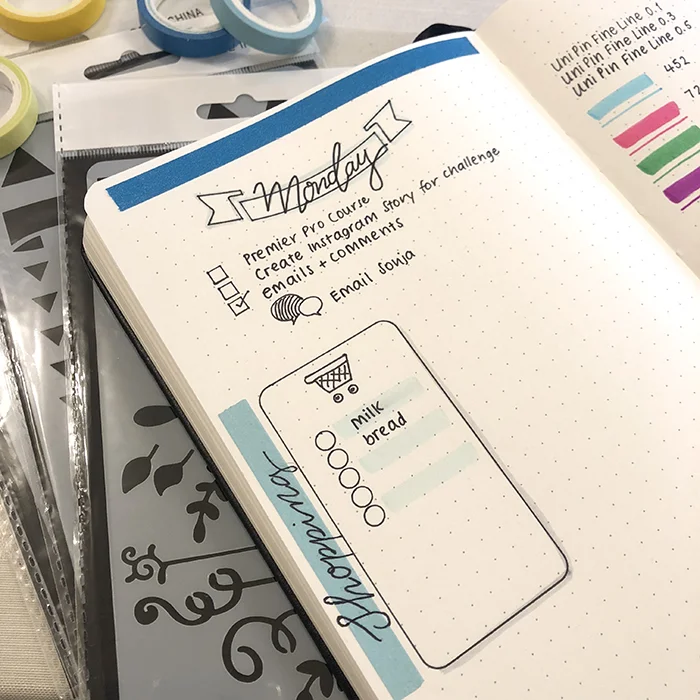 CHINA
Monday
Premier Pro Course
Create Instagram story for challenge
emails + comments
Email Sonja
milk
bread
Shopping
Uni Pin Fine Line 0.1
Uni Pin Fine Line 0.3
Uni Pin Fine Line 0.5
452